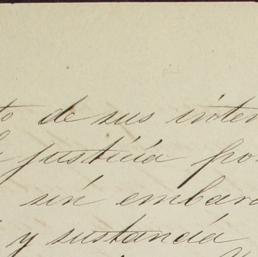 to de sus inter
justicia por
sin embarg
y sustancia